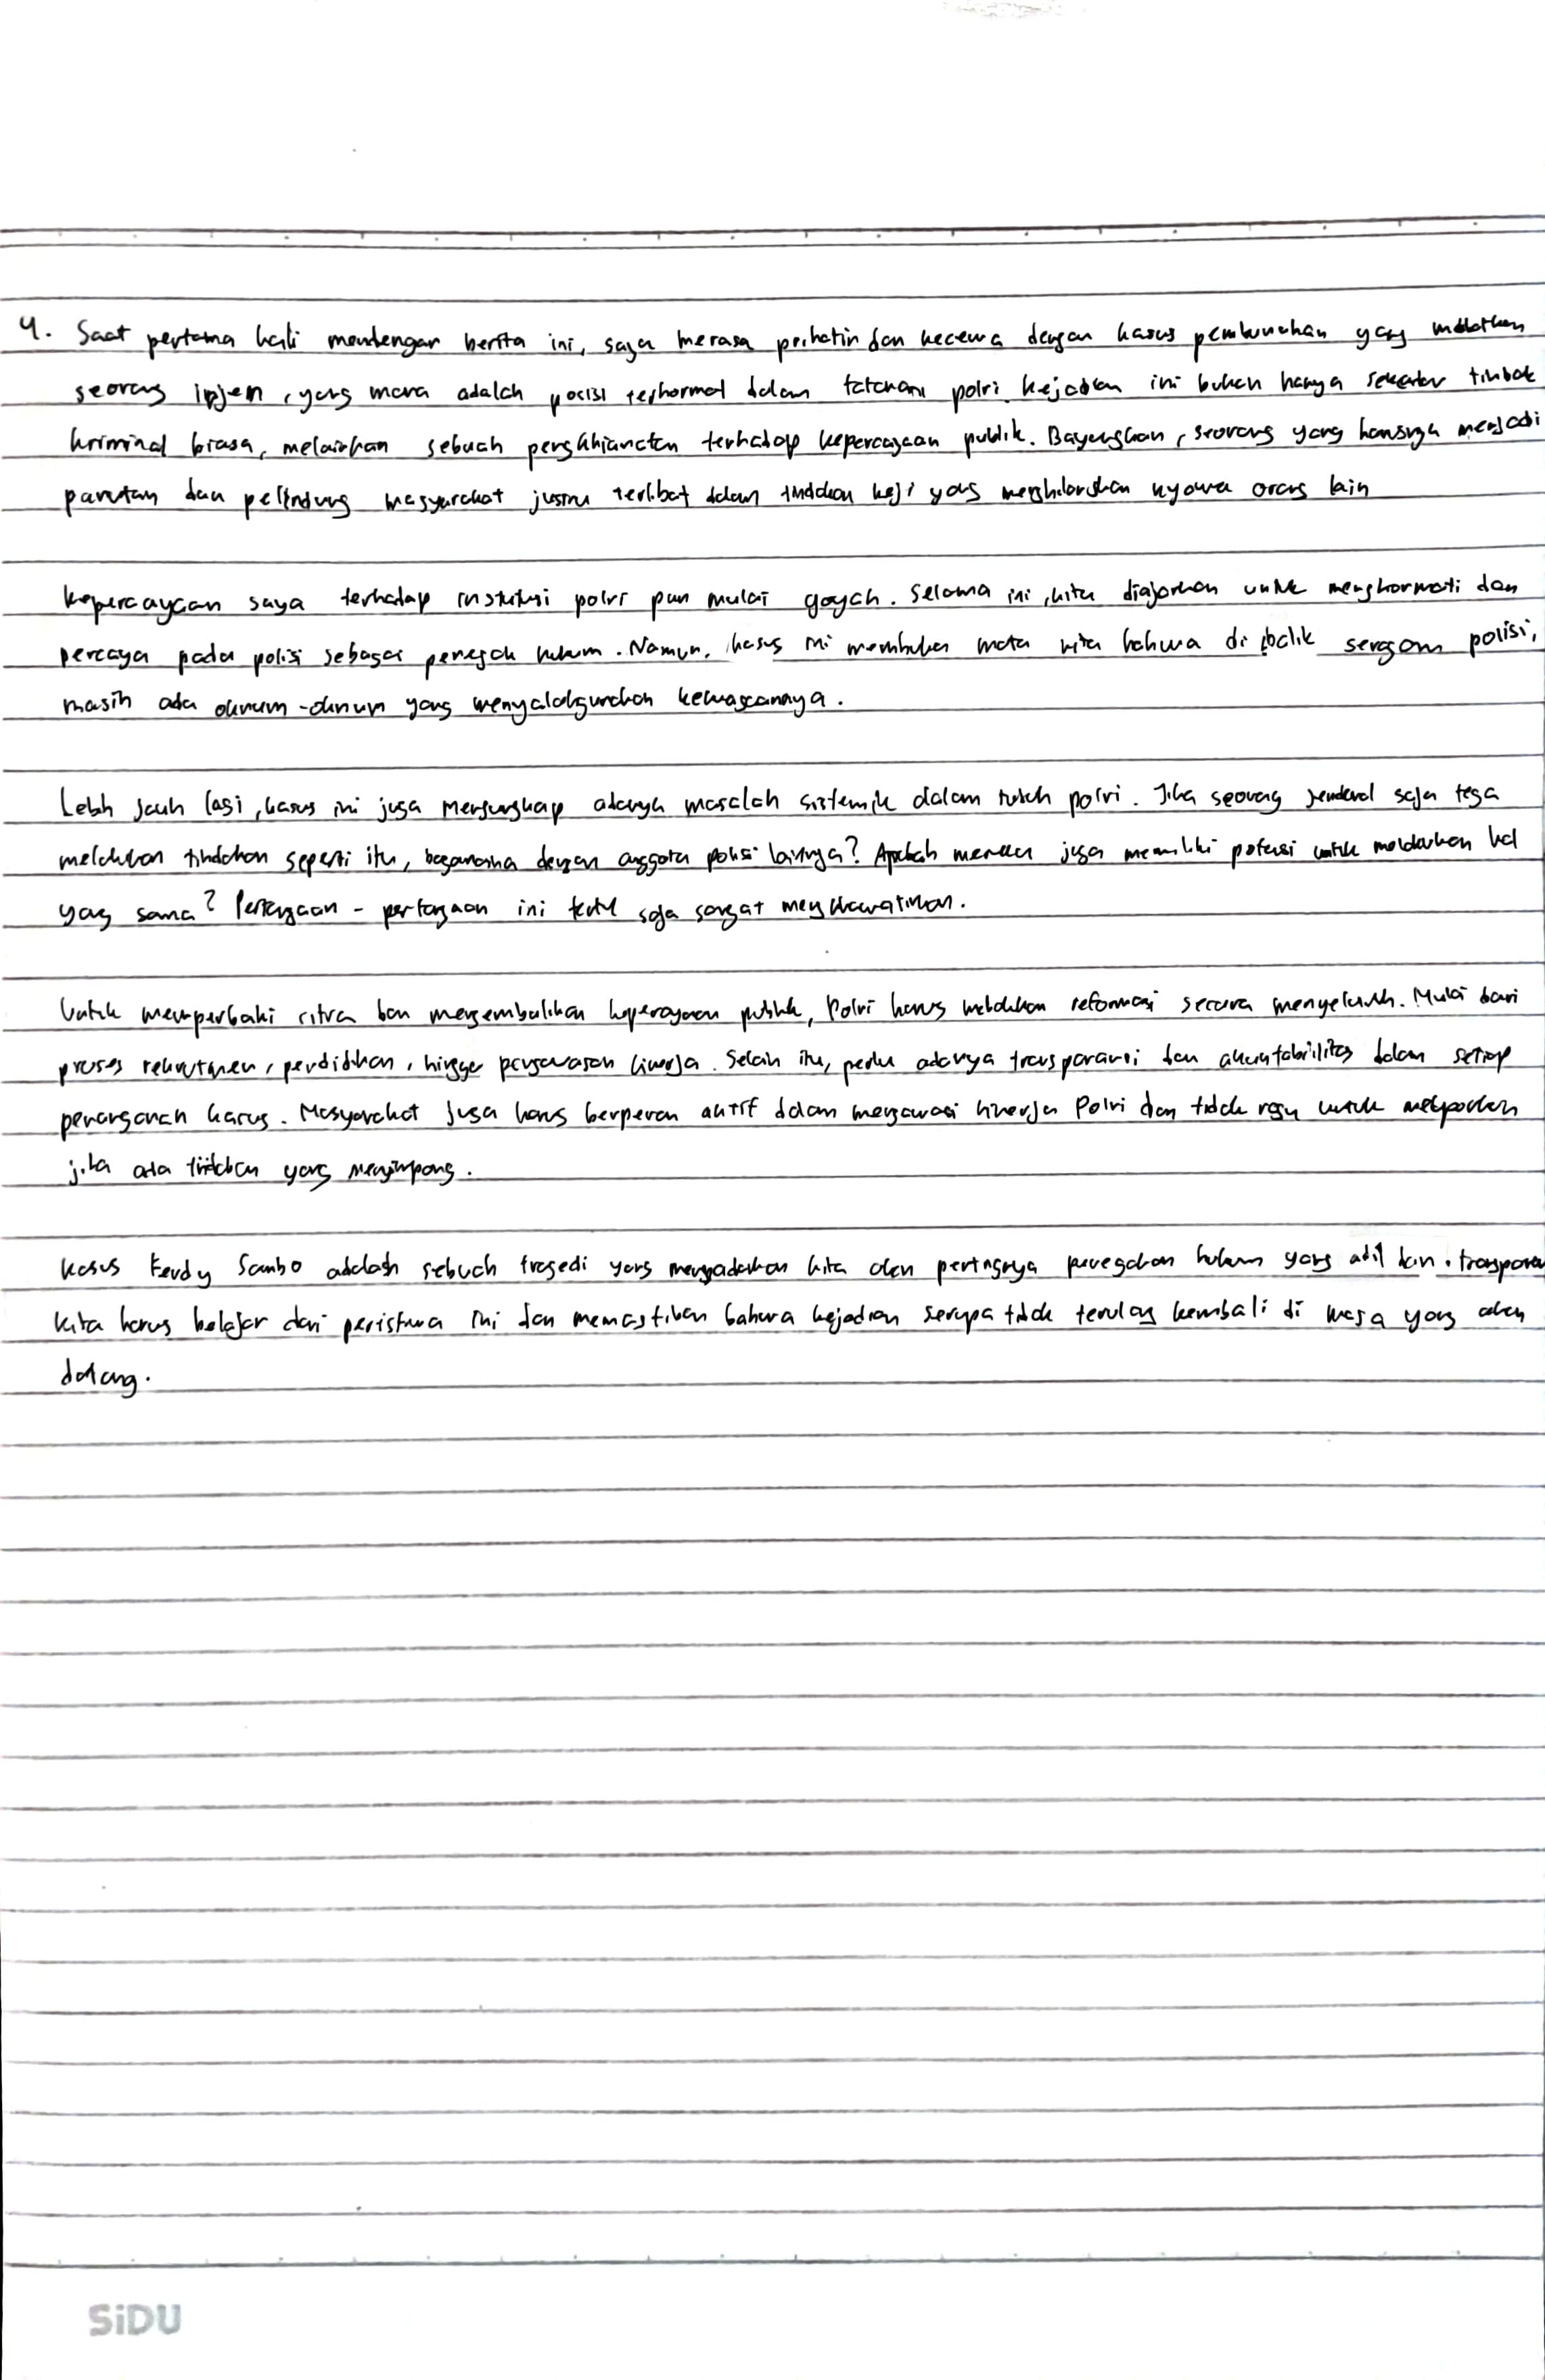 4. Saat pertama kali mendengar berita ini, saya merasa prihatin dan kecewa dengan kasus pembunuhan yang melibatkan
seorang Irjen, yang mana adalah posisi terhormat dalam tatanan polri. kejadian ini bukan hanya sekedar tindak
kriminal biasa, melainkan sebuah pengkhianatan terhadap kepercayaan publik. Bayangkan, seorang yang harusnya menjadi
panutan dan pelindung masyarakat justru terlibat dalam tindakan keji yang menghilangkan nyawa orang lain
kepercayaan saya terhadap institusi polri pun mulai goyah. Selama ini, kita diajarkan untuk menghormati dan
percaya pada polisi sebagai penegak hukum. Namun, kasus ini membuka mata kita bahwa di balik seragam polisi,
masih ada oknum-oknum yang menyalahgunakan kekuasaannya.
Lebih jauh lagi, kasus ini juga mengungkap adanya masalah sistemik dalam tubuh polri. Jika seorang jenderal saja tega
melakukan tindakan seperti itu, bagaimana dengan anggota polisi lainnya? Apakah mereka juga memiliki potensi untuk melakukan hal
yang sama? Pertanyaan - pertanyaan ini tentu saja sangat mengkhawatirkan.
Untuk memperbaiki citra dan mengembalikan kepercayaan publik, Polri harus melakukan reformasi secara menyeluruh. Mulai dari
proses rekrutmen, pendidikan, hingga pengawasan kinerja. Selain itu, perlu adanya transparansi dan akuntabilitas dalam setiap
penanganan kasus. Masyarakat juga harus berperan aktif dalam mengawasi kinerja Polri dan tidak ragu untuk melaporkan
jika ada tindakan yang menyimpang.
Kasus Ferdy Sambo adalah sebuah tragedi yang menyadarkan kita akan pentingnya penegakan hukum yang adil dan transparan
kita harus belajar dari peristiwa ini dan memastikan bahwa kejadian serupa tidak terulang kembali di masa yang akan
datang.
SiDU